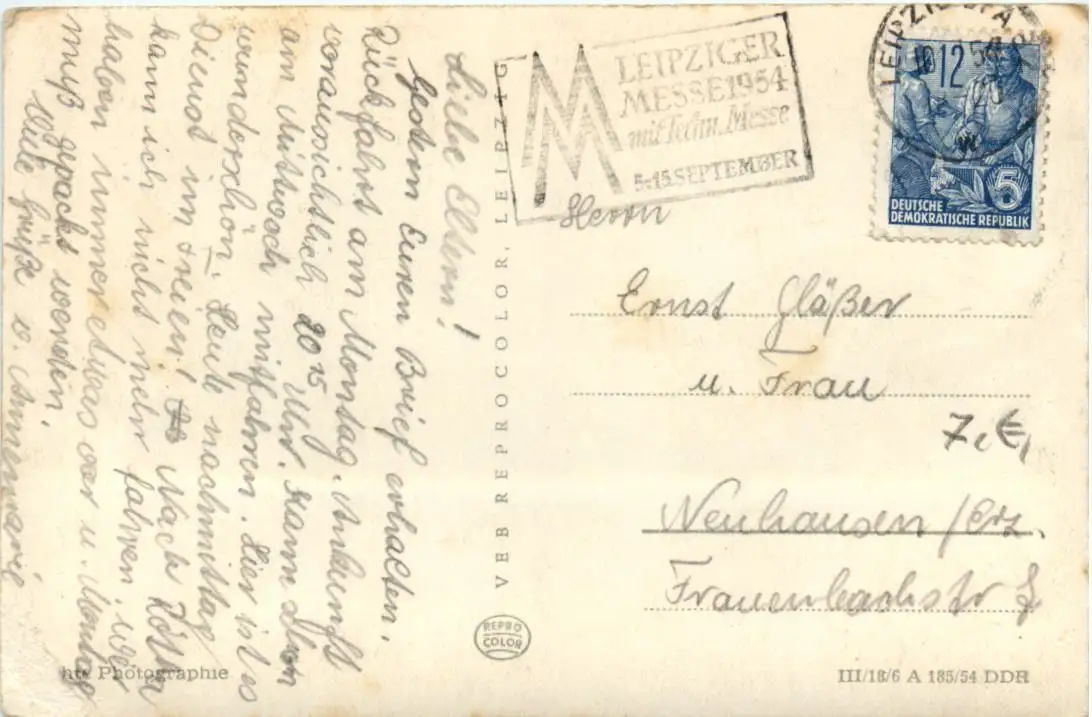 Liebe Eltern!
Gestern Euren Brief erhalten.
Rückfahrt am Montag. Ankunft
voraussichtlich 20 15 Uhr. Kann schon
am Mittwoch mitfahren. Hier ist es
wunderschön. Heute nachmittag
Dienst im Freien! Nach
kann ich nicht mehr fahren.
haben immer etwas vor u. Montag
muß gepackt werden.
Viele Grüße v. Annemarie
VEB REPROCOLOR, LEIPZIG
REPRO
COLOR
LEIPZIGER
MESSE 1954
mit Techn. Messe
5.-15. SEPTEMBER
LEIPZIG
5
DEUTSCHE
DEMOKRATISCHE REPUBLIK
Herrn
Ernst Gläßer
u. Frau
7,€,
Neuhausen /Erz.
Frauenbachstr
Photographie
III/18/6 A 185/54 DDR